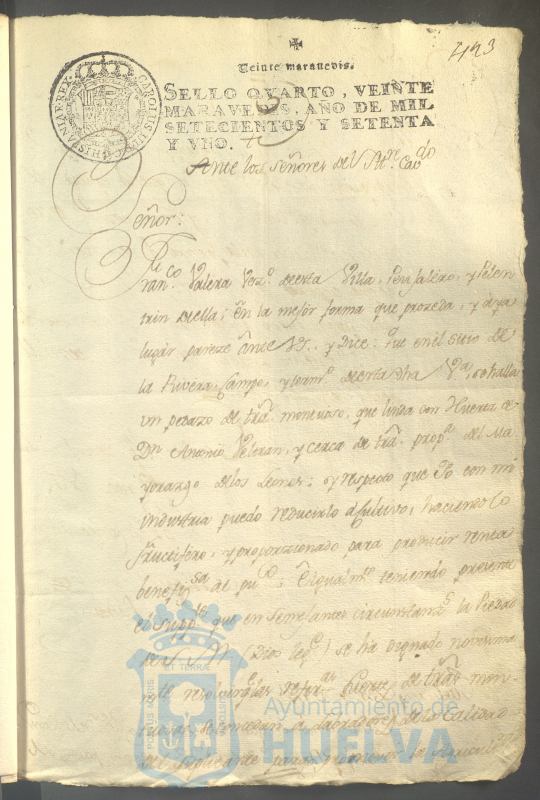 423
Veinte maravedis.
SELLO QVARTO, VEINTE
MARAVEDIS, AÑO DE MIL
SETECIENTOS Y SETENTA
Y VNO.
CAROLUS III D G HISPANIAR REX
Ante los Señores del Ill.re Cav.do
Señor:
Fran.co Valera Vez.o de esta Villa, Pujalero, y Pelen
trin de ella; en la mejor forma que prozeda, y aya
lugar pareze ante VS. y Dice: Que en el sitio de
la Rivera, Campo, y term.o de esta dha V.a, se halla
un pedazo de trra montuoso, que linda con Huerta de
Dn Antonio Beltran, y cerca de trra prop.a del Ma
yorazgo de los Leones; y respecto que Yo con mi
industria puedo reducirlo a cultivo, haciendolo
fructifero, y proporzionado para producir renta
benefiz.sa al pu.co; e igualm.te teniendo presente
el supp.te que en semejantes circunstanz.s la Piedad
de S. M. (Dios le g.e) se ha dignado novisima
m.te resolver de trras mon
tuosas se concedan a labradores de la calidad
del suplicante para
PORTUS MARIS ET TERRAE
Ayuntamiento de
HUELVA